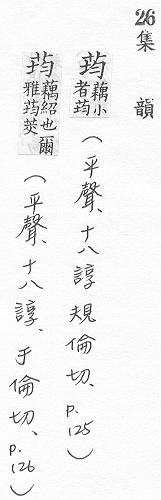 26 集韻
蒟藕小者蒟（平聲、十八諄、規倫切、p.125）
蒟藕紹也爾雅蒟茭（平聲、十八諄、于倫切、p.126）